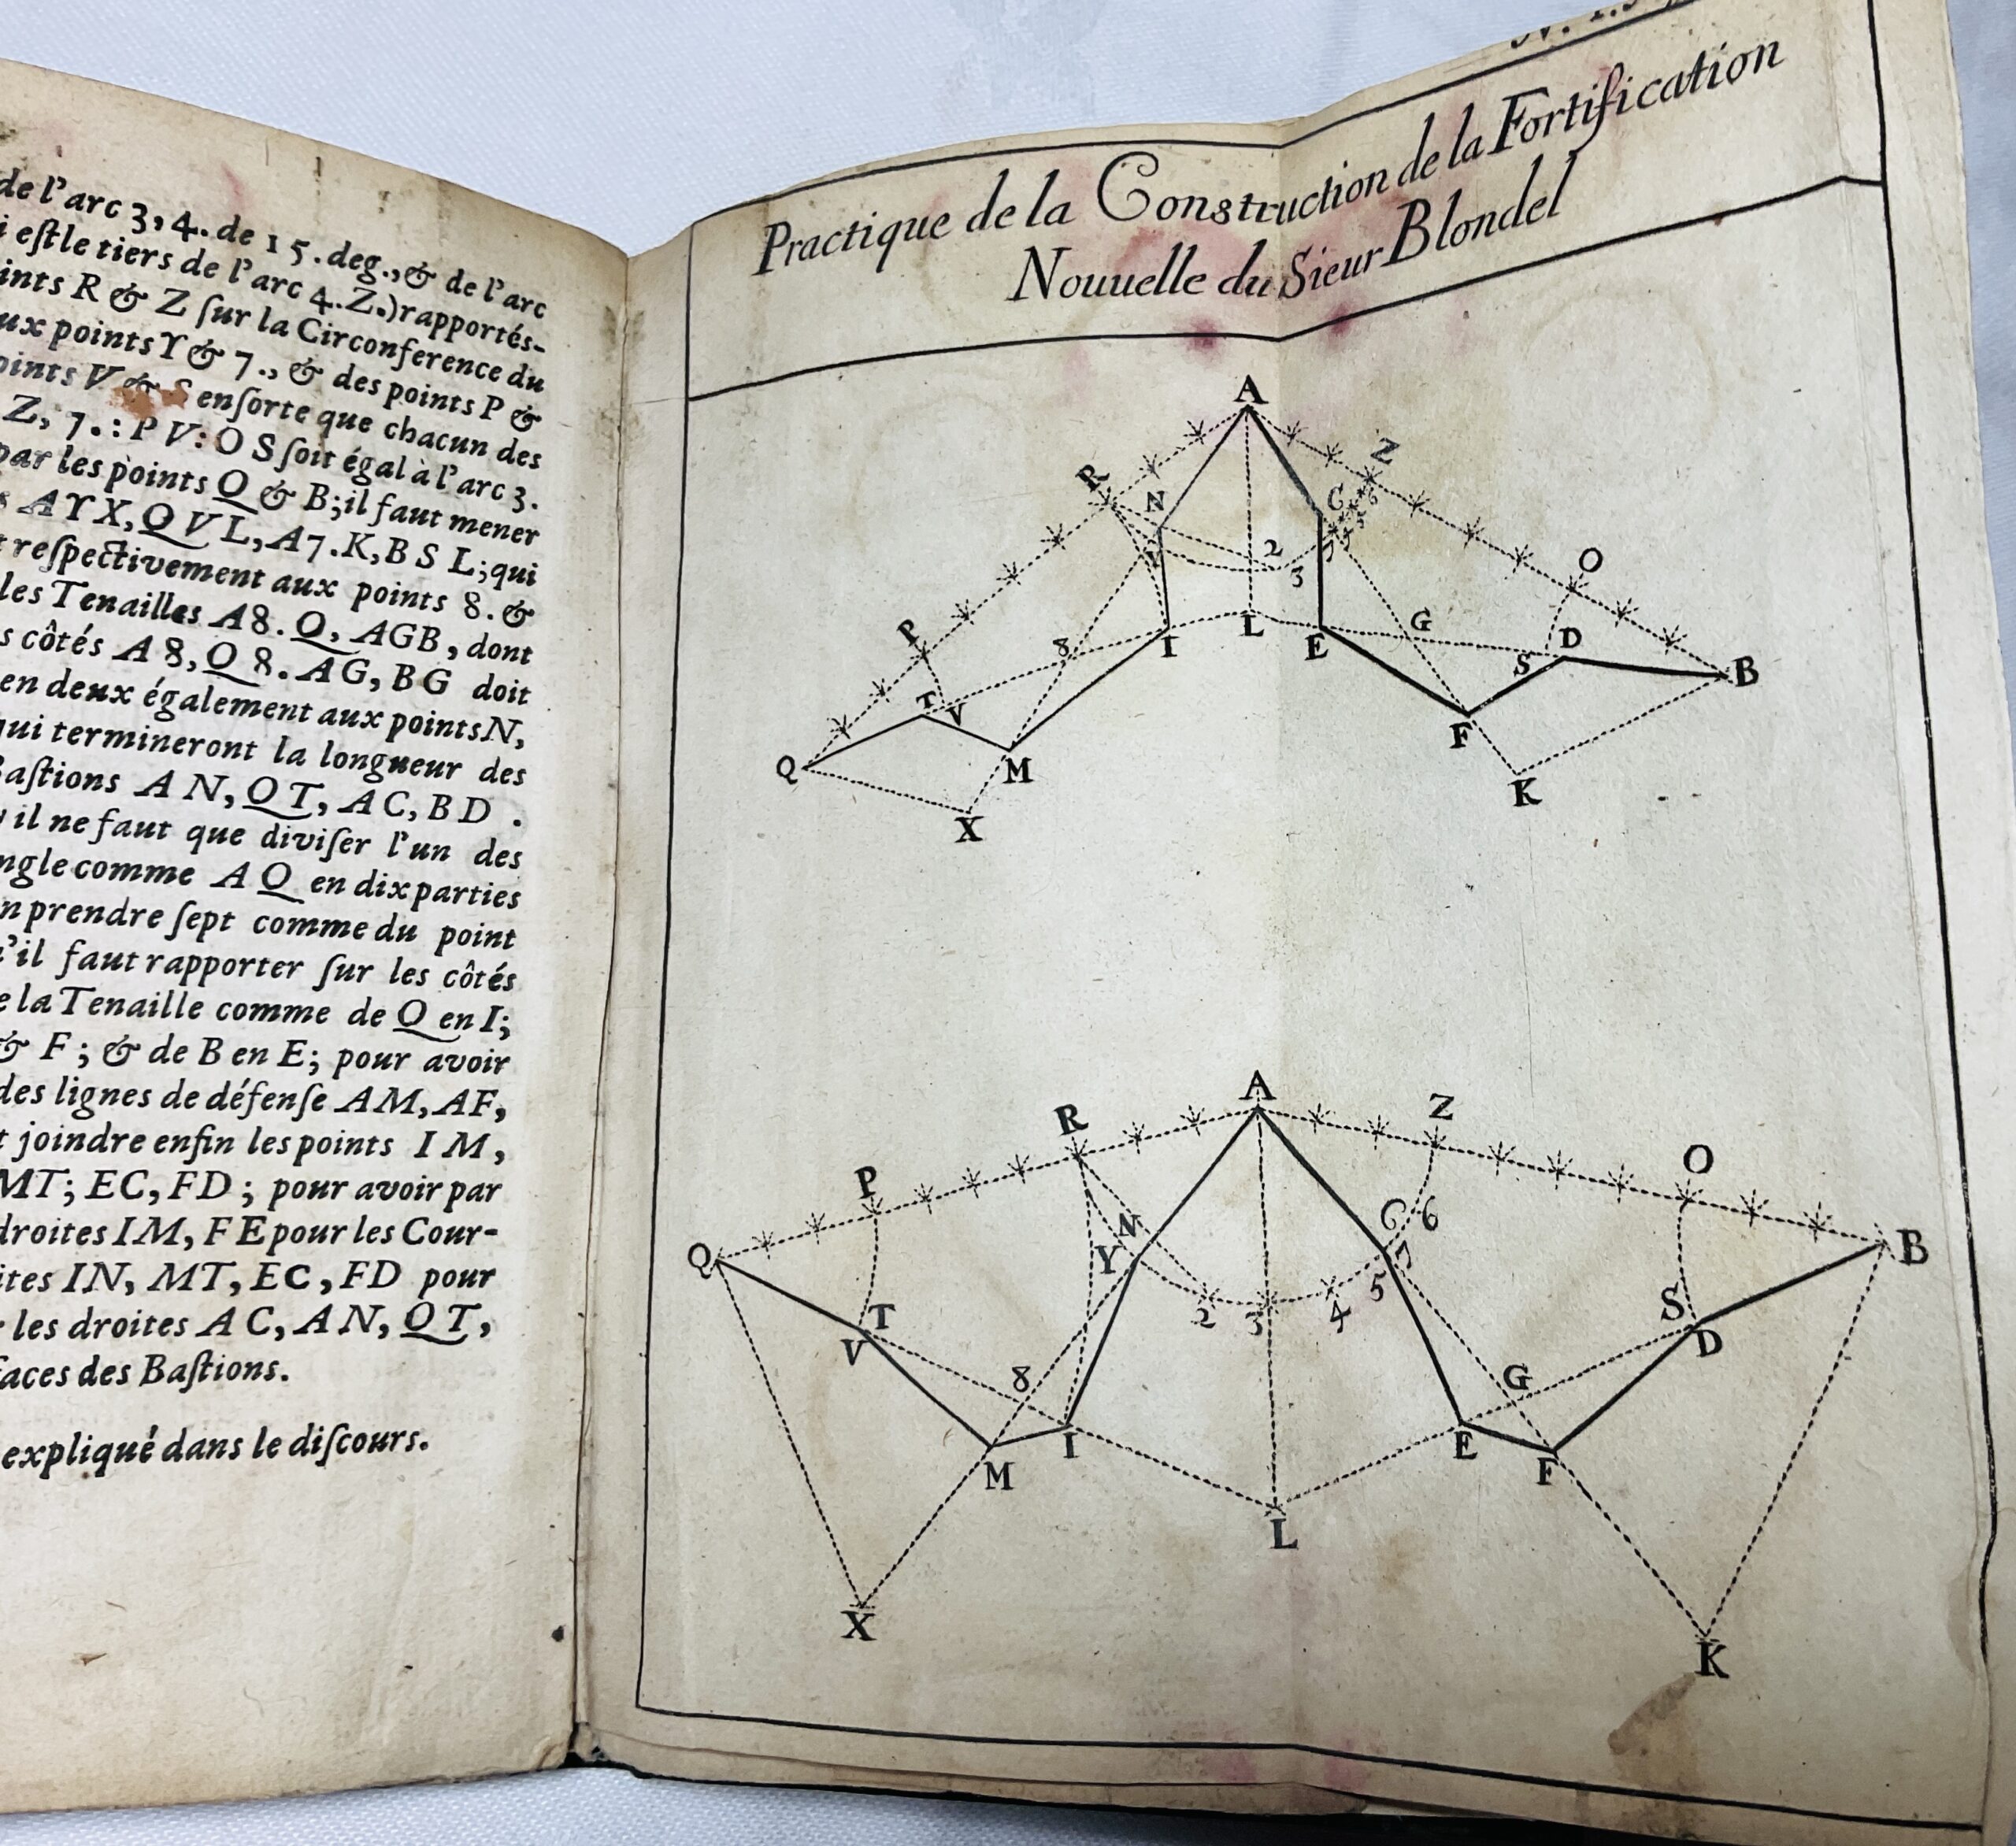 de l'arc 3, 4. de 15. deg., & de l'arc
i eſt le tiers de l'arc 4. Z.) rapportés-
ints R & Z ſur la Circonference du
ux points Y & 7., & des points P &
oints V & S enſorte que chacun des
Z, 7. : P V: O S ſoit égal à l'arc 3.
par les points Q & B; il faut mener
s AYX, QVL, A7.K, BSL; qui
t reſpectivement aux points 8. &
les Tenailles A8.Q, AGB, dont
s côtés A8, Q8. AG, BG doit
en deux également aux points N,
qui termineront la longueur des
Baſtions AN, QT, AC, BD.
il ne faut que diviſer l'un des
ngle comme AQ en dix parties
n prendre ſept comme du point
'il faut rapporter ſur les côtés
e la Tenaille comme de Q en I;
& F; & de B en E; pour avoir
des lignes de défenſe AM, AF,
t joindre enfin les points IM,
MT; EC, FD; pour avoir par
droites IM, FE pour les Cour-
ites IN, MT, EC, FD pour
les droites AC, AN, QT,
faces des Baſtions.
expliqué dans le diſcours.
Practique de la Construction de la Fortification
Nouuelle du Sieur Blondel
A
R
Z
N
C
6
5
7
2
3
O
P
8
I
L
E
G
D
S
B
T
V
Q
M
F
X
K
A
R
Z
P
O
N
C
6
Q
Y
7
B
2
3
4
5
T
S
V
D
8
G
I
E
M
F
L
X
K